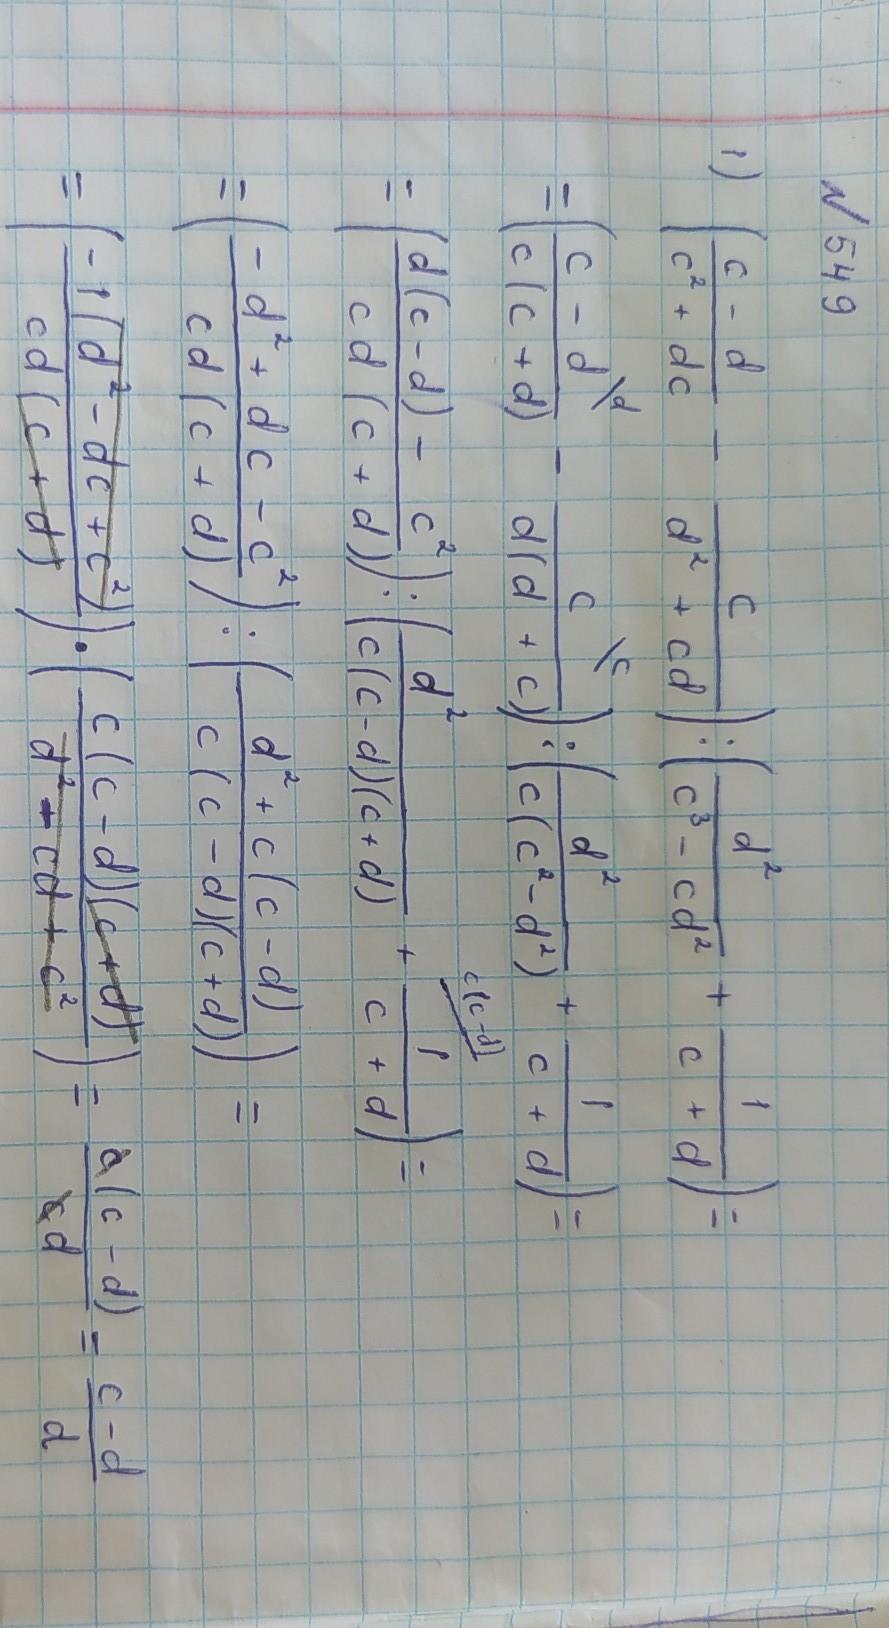 № 549
1) ((c - d)/(c² + dc) - c/(d² + cd)) : (d²/(c³ - cd²) + 1/(c + d)) =
= ((c - d)\d/(c(c + d)) - c\c/(d(d + c))) : (d²/(c(c² - d²)) + 1/(c + d)) =
= ((d(c - d) - c²)/(cd(c + d))) : (d²/(c(c - d)(c + d)) + 1\c(c-d)/(c + d)) =
= ((-d² + dc - c²)/(cd(c + d))) : ((d² + c(c - d))/(c(c - d)(c + d))) =
= ((-1(d² - dc + c²))/(cd(c + d))) · ((c(c - d)(c + d))/(d² - cd + c²)) = c(c - d)/cd = (c - d)/d